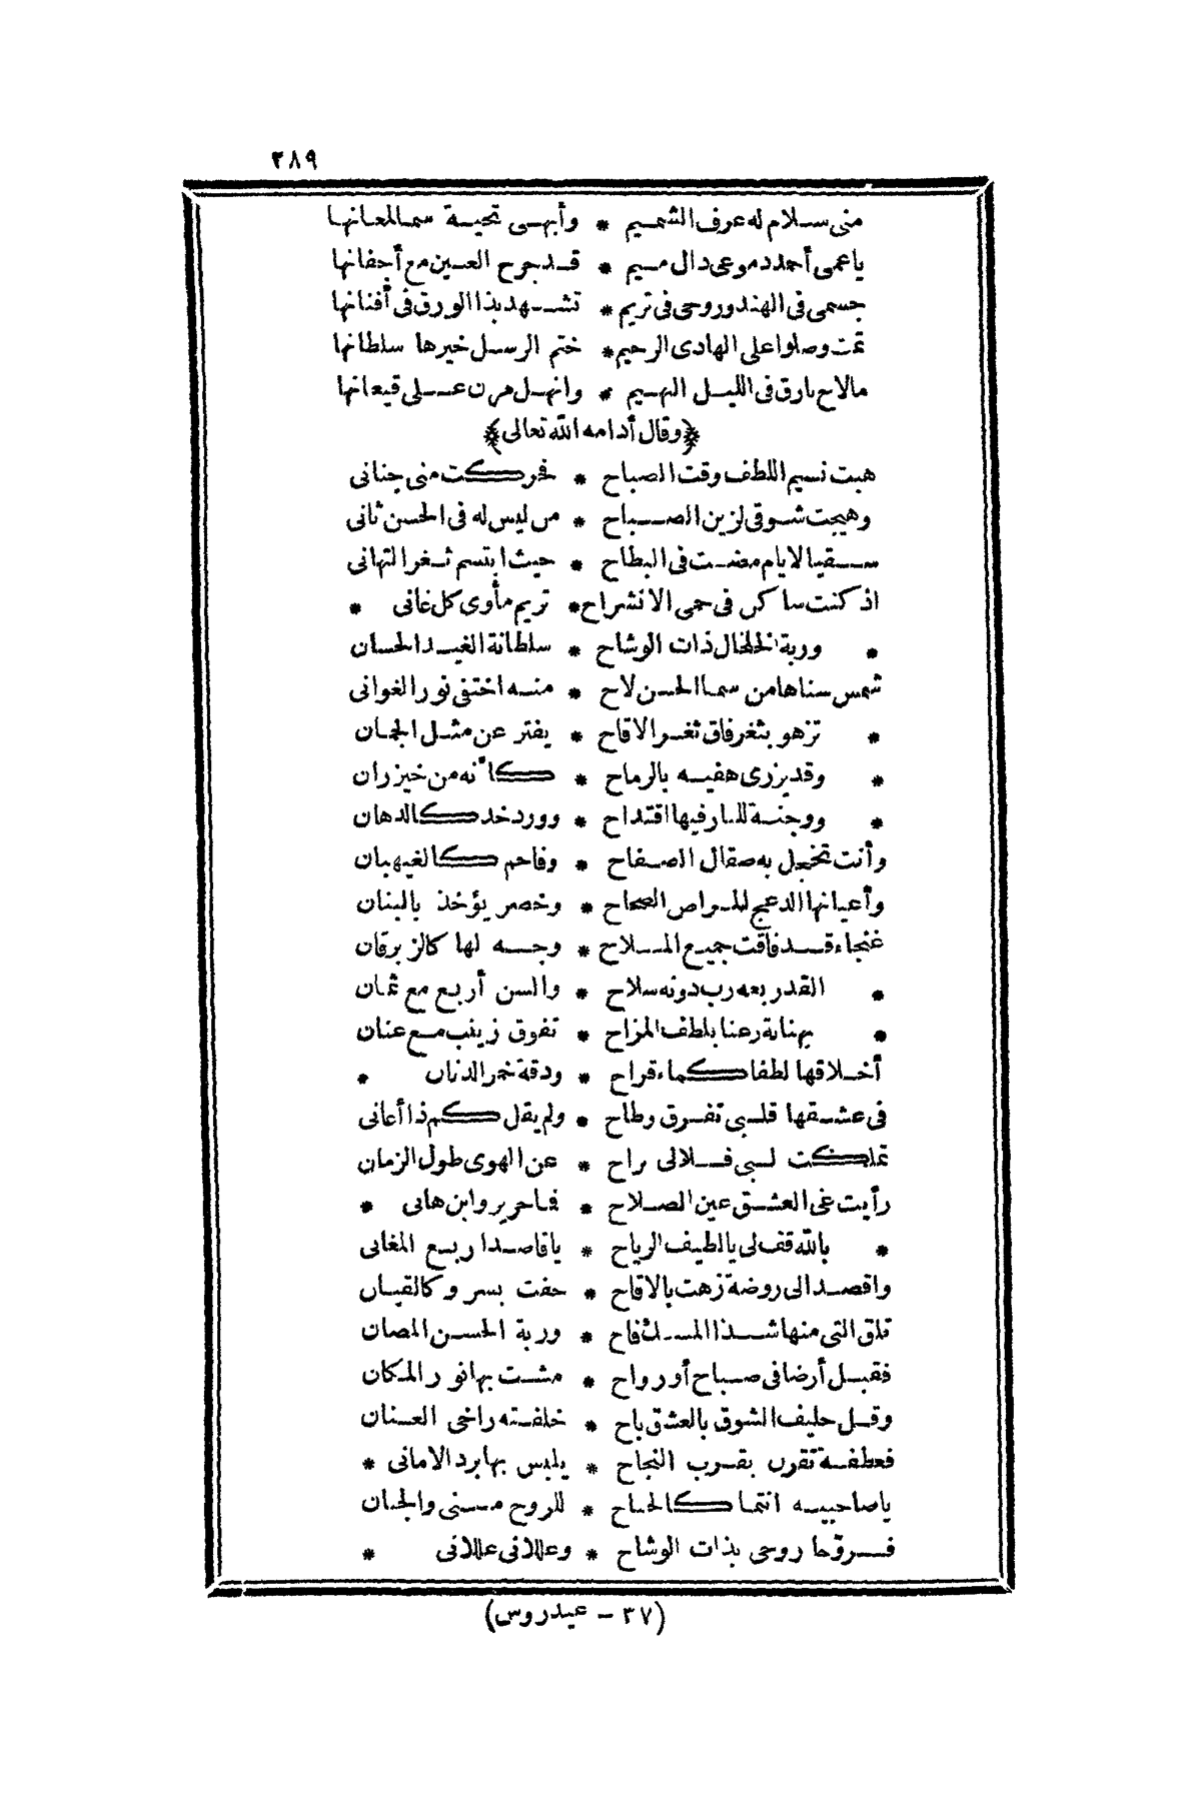 ٢٨٩
منى سلام له عرف الشميم * وأبهى تحية سما المعانيها
ياعمى أحمد دموعى دال ميم * قد جرح العين مع أجفانها
جسمى فى الهند وروحى فى تريم * تشهد بذا الورق فى أفنانها
تمت وصلوا على الهادى الرحيم * ختم الرسل خيرها سلطانها
مالاح بارق فى الليل البهيم * وانهل مزن على قيعانها
﴿وقال أدامه الله تعالى﴾
هبت نسيم اللطف وقت الصباح * فحركت منى جنانى
وهيجت شوقى لزين الصباح * من ليس له فى الحسن ثانى
سقيا لايام مضت فى البطاح * حيث ابتسم ثغر التهانى
اذ كنت ساكن فى حمى الانشراح * تريم مأوى كل غانى *
* وربة الخلخال ذات الوشاح * سلطانة الغيد الحسان
شمس سناها من سما الحسن لاح * منه اختفى نور الغوانى
* تزهو بثغر فاق ثغر الاقاح * يفتر عن مثل الجمان
* وقد يزرى هفيه بالرماح * كأنه من خيزران
* ووجنة للنار فيها اقتداح * وورد خد كالدهان
وأنت تخجل به صقال الصفاح * وفاحم كالغيهبان
وأعيانها الدعج المراض الصحاح * وخصر يؤخذ بالبنان
غنجاء قد فاقت جميع الملاح * وجه لها كالزبرقان
* القد ربعه رب دونه سلاح * والسن أربع مع ثمان
* بهنانة رعنا بلطف المزاح * تفوق زينب مع عنان
أخلاقها لطفا كماء قراح * ودقة خمر الدنان *
فى عشقها قلبى تفرق وطاح * ولم يقل كم ذا أعانى
تملكت لبى فلا لى براح * عن الهوى طول الزمان
رأيت غى العشق عين الصلاح * فما جرير وابن هانى *
* بالله قف لى يا لطيف الرياح * يا قاصدا ربع المغانى
واقصد الى روضة زهت بالاقاح * حفت بسر وكالقيان
تلق التى منها شذا المسك فاح * وربة الحسن المصان
فقبل أرضا فى صباح أو رواح * مشت بها نور المكان
وقل حليف الشوق بالعشق باح * خلفته راخى العنان
فعطفة تقرن بقرب النجاح * يلبس بها برد الامانى *
ياصاحبيه انتما كالجناح * للروح منى والجنان
فروّحا روحى بذات الوشاح * وعللانى عللانى *
(٣٧ - عيدروس)